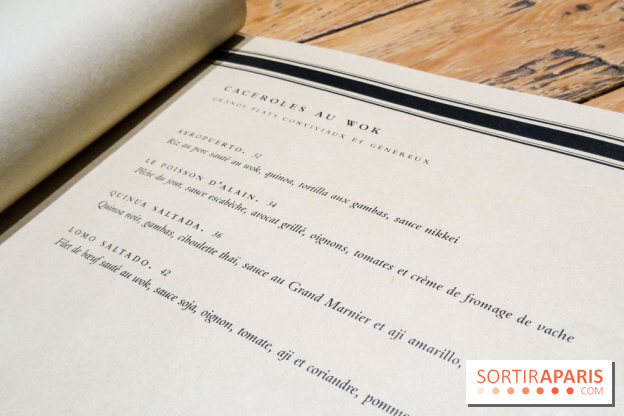 CACEROLES AU WOK
GRANDS PLATS CONVIVIAUX ET GÉNÉREUX
AEROPUERTO. 32
Riz au porc sauté au wok, quinoa, tortilla aux gambas, sauce nikkei
LE POISSON D'ALAIN. 34
Pêche du jour, sauce escabèche, avocat grillé, oignons, tomates et crème de fromage de vache
QUINUA SALTADA. 36
Quinoa noir, gambas, ciboulette thaï, sauce au Grand Marnier et aji amarillo,
LOMO SALTADO. 42
Filet de bœuf sauté au wok, sauce soja, oignon, tomate, aji et coriandre, pomme
SORTIRAPARIS
.COM